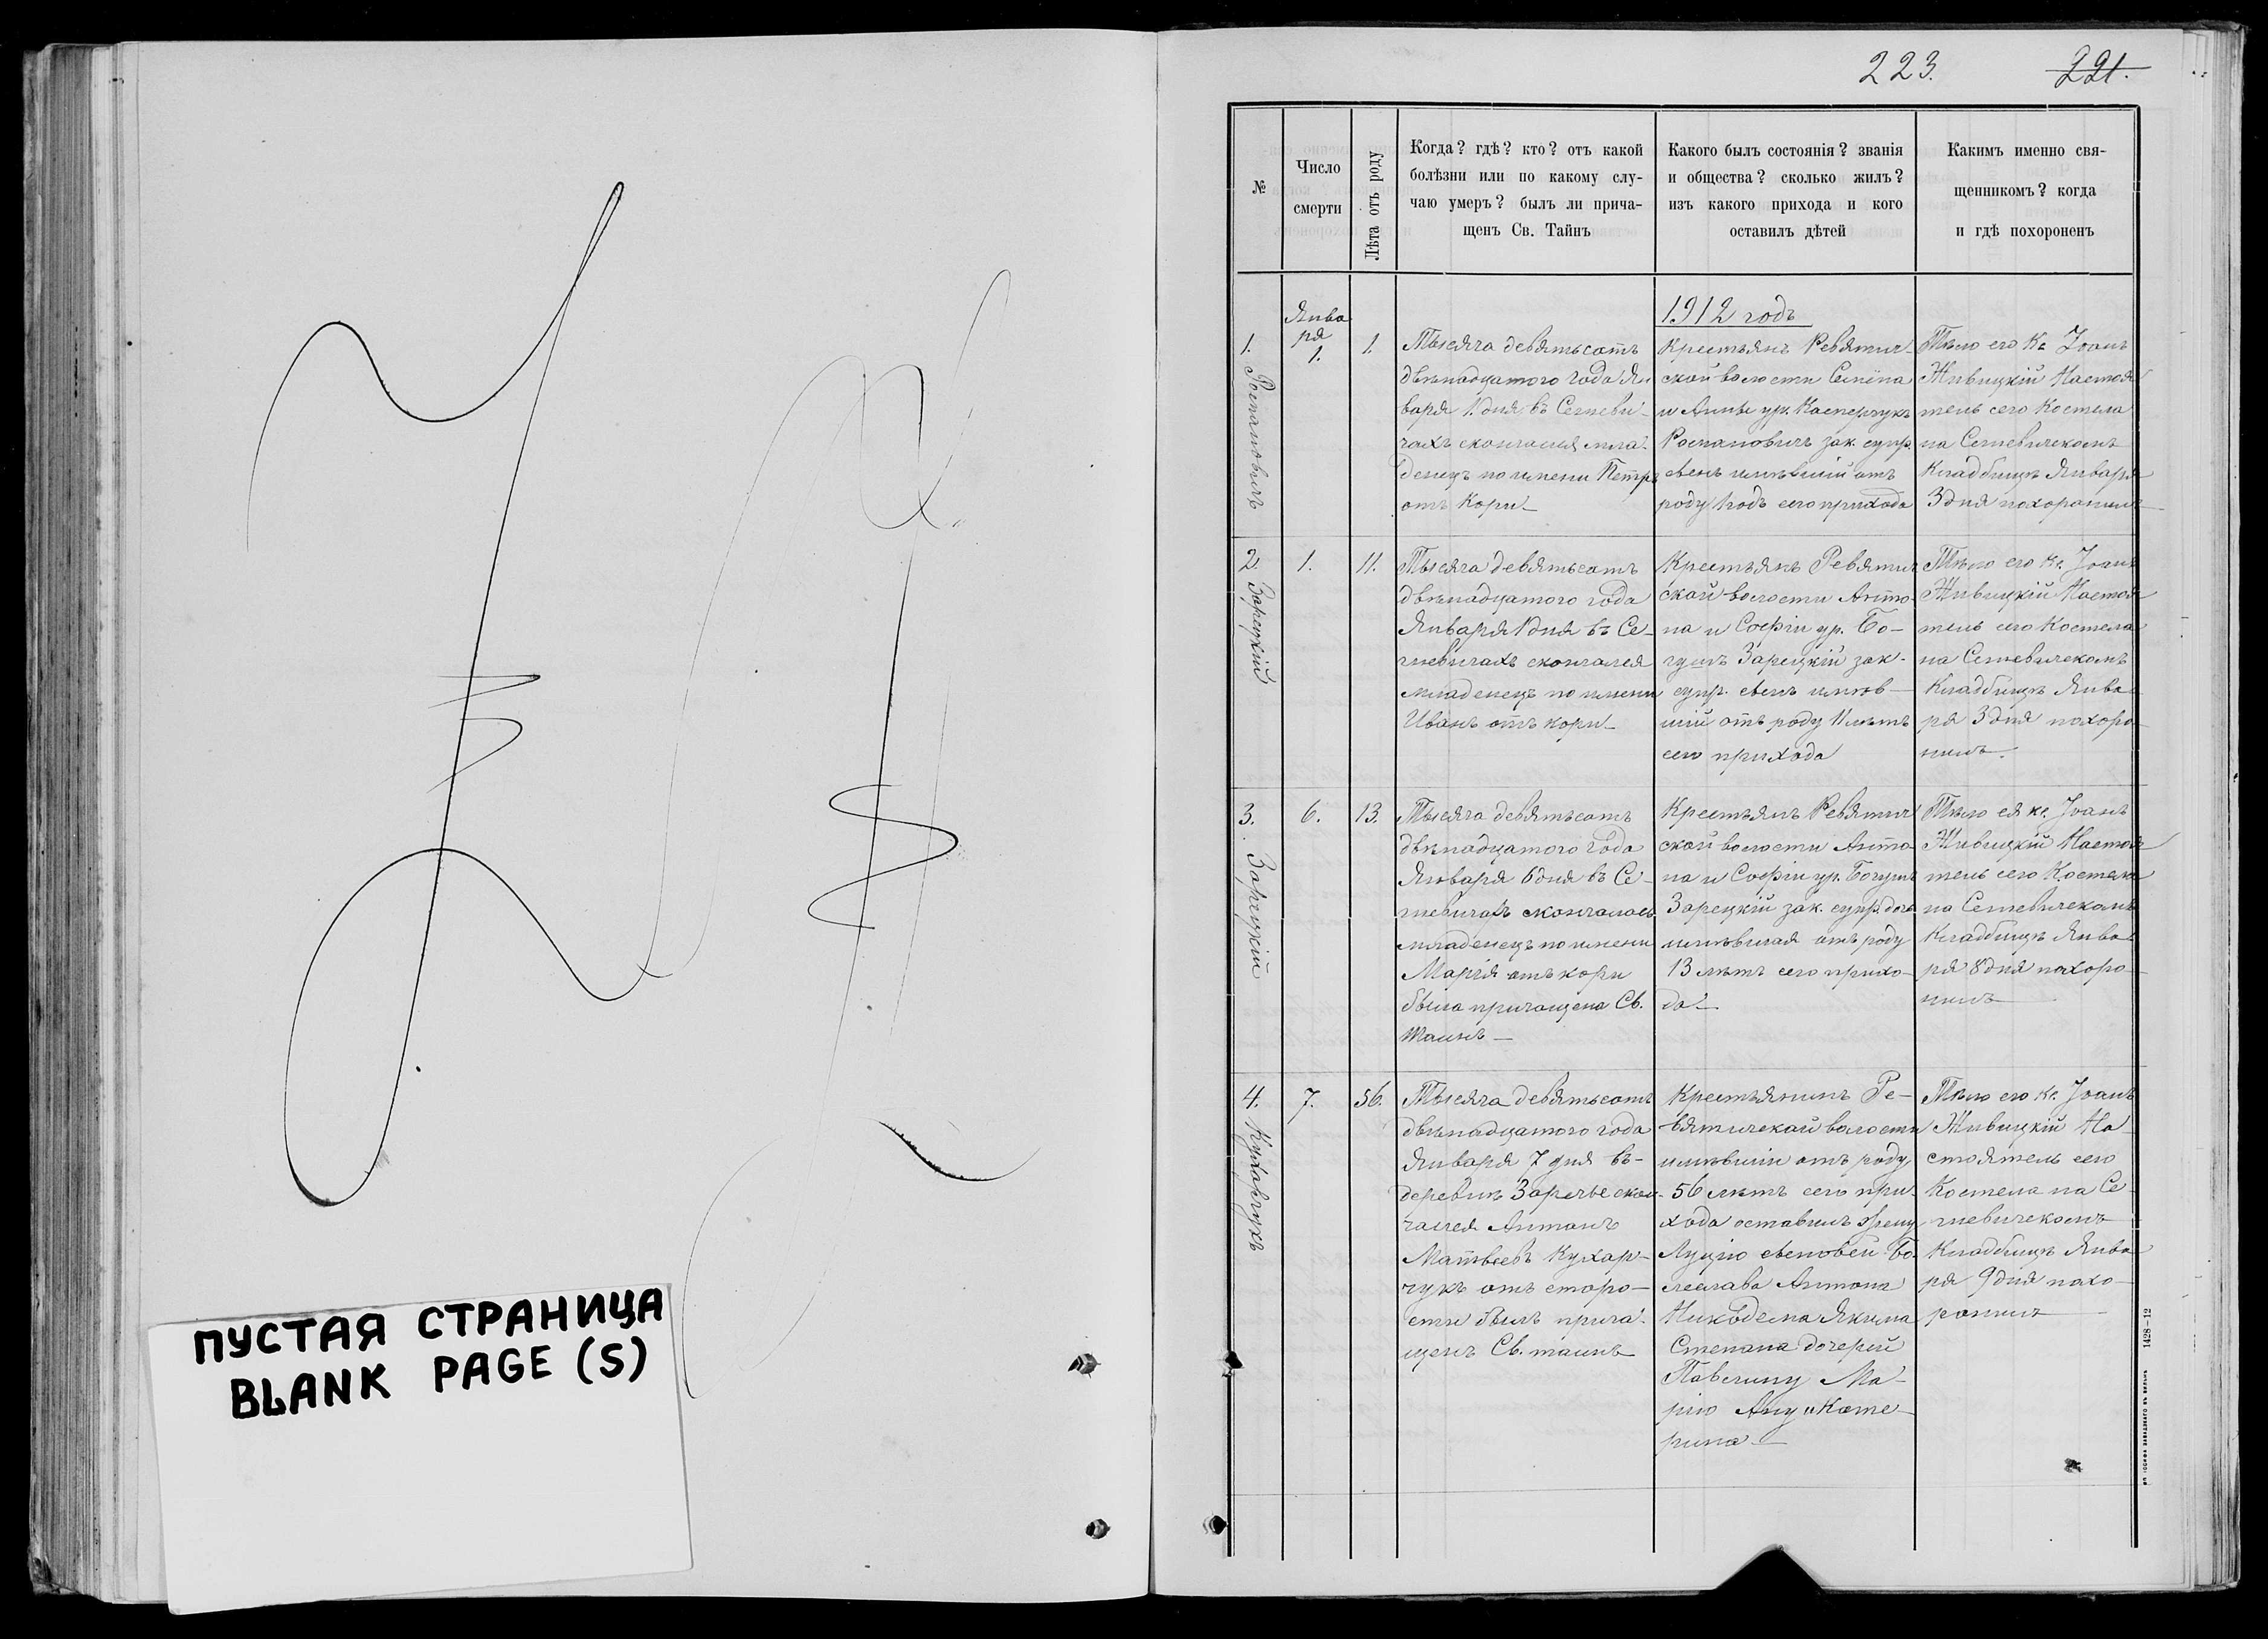 ПУСТАЯ СТРАНИЦА
BLANK PAGE (S)
223.
221.
№
Число
смерти
Лѣта отъ роду
Когда? гдѣ? кто? отъ какой
болѣзни или по какому слу-
чаю умеръ? былъ ли прича-
щенъ Св. Тайнъ
Какого былъ состоянія? званія
и общества? сколько жилъ?
изъ какого прихода и кого
оставилъ дѣтей
Какимъ именно свя-
щенникомъ? когда
и гдѣ похороненъ
1912 годъ
1.
Романовичъ
Янва
ря
1.
1.
Тысяча девятьсотъ
двѣнадцатого года Ян
варя 1 дня въ Сегневи-
чахъ скончался мла-
денецъ по имени Петръ
отъ кори
Крестьянъ Ревятич-
ской волости Семёна
и Анны ур. Касперчукъ
Романовичъ зак. супр.
сынъ имѣвшій отъ
роду 1 годъ сего прихода
Тѣло его Кс Іоанъ
Живицкій Настоя
тель сего Костела
на Сегневичскомъ
Кладбищѣ Января
3 дня похоронилъ
2.
Зарецкій
1.
11.
Тысяча девятьсотъ
двѣнадцатого года
Января 1 дня въ Се-
гневичахъ скончался
младенецъ по имени
Иванъ отъ кори
Крестьянъ Ревятич
ской волости Анто-
на и Софіи ур. Бо-
гушъ Зарецкій зак.
супр. сынъ имѣв-
шій отъ роду 11 лѣтъ
сего прихода
Тѣло его кс. Іоанъ
Живицкій Настоя
тель сего Костела
на Сегневичскомъ
Кладбищѣ Янва-
ря 3 дня похоро-
нилъ.
3.
Зарецкій
6.
13.
Тысяча девятьсотъ
двѣнадцатого года
Января 6 дня въ Се-
гневичахъ скончалась
младенецъ по имени
Марія отъ кори
была причащена Св.
Таинъ
Крестьянъ Ревятич
ской волости Анто-
на и Софіи ур. Богушъ
Зарецкій зак. супр. дочь
имѣвшая отъ роду
13 лѣтъ сего прихо-
да
Тѣло ея кс. Іоанъ
Живицкій Настоя
тель сего Костела
на Сегневичскомъ
Кладбищѣ Янва-
ря 8 дня похоро-
нилъ
4.
Кухарчукъ
7.
56.
Тысяча девятьсотъ
двѣнадцатого года
Января 7 дня въ
деревнѣ Заречье скон-
чался Антонъ
Матвѣевъ Кухар-
чукъ отъ старо-
сти былъ прича-
щенъ Св. таинъ
Крестьянинъ Ре-
вятичской волости
имѣвшій отъ роду
56 лѣтъ сего при-
хода оставилъ жену
Луцію сыновей Бо
леслава Антона
Никодема Якима
Степана дочерей
Павлину Ма-
рію Анну и Кате
рина
Тѣло его Кс. Іоанъ
Живицкій На-
стоятель сего
Костела на Се-
гневичскомъ
Кладбищѣ Янва
ря 9 дня похо-
ронилъ
1428—12